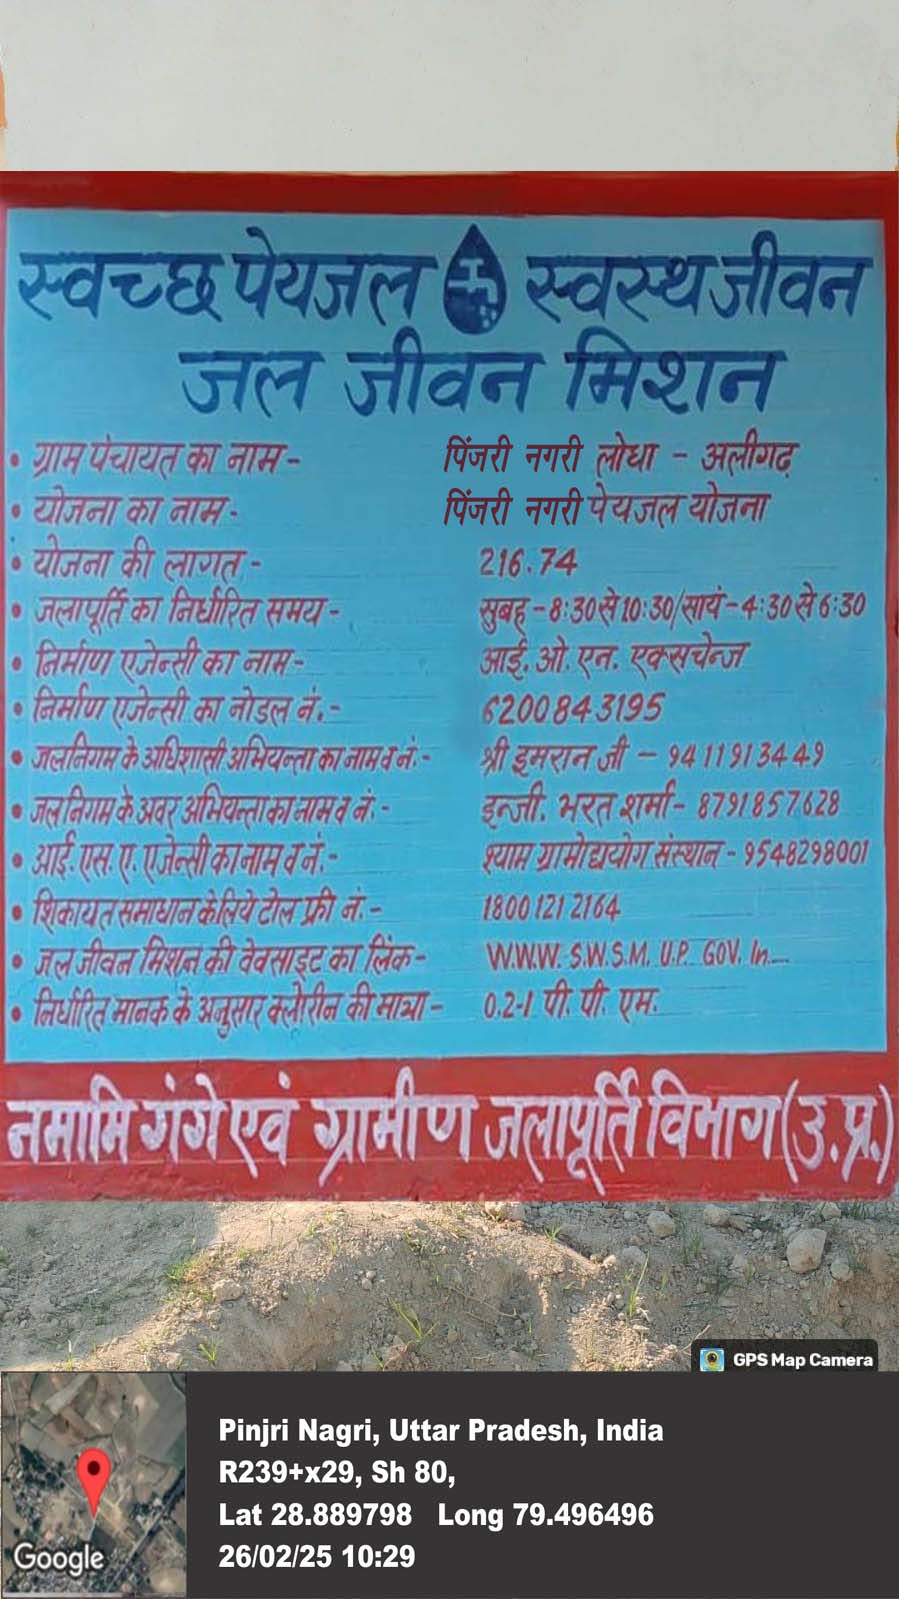 स्वच्छ पेयजल स्वस्थ जीवन
जल जीवन मिशन
• ग्राम पंचायत का नाम - पिंजरी नगरी लोधा - अलीगढ़
• योजना का नाम - पिंजरी नगरी पेयजल योजना
• योजना की लागत - 216.74
• जलापूर्ति का निर्धारित समय - सुबह - 8:30 से 10:30/सायं - 4:30 से 6:30
• निर्माण एजेन्सी का नाम - आई. ओ. एन. एक्सचेन्ज
• निर्माण एजेन्सी का नोडल नं. - 6200843195
• जलनिगम के अधिशासी अभियन्ता का नाम व नं. - श्री इमरान जी - 9411913449
• जलनिगम के अवर अभियन्ता का नाम व नं. - इन्जी. भरत शर्मा - 8791857628
• आई. एस. ए. एजेन्सी का नाम व नं. - श्याम ग्रामोद्ययोग संस्थान - 9548298001
• शिकायत समाधान के लिये टोल फ्री नं. - 18001212164
• जल जीवन मिशन की वेवसाइट का लिंक - W.W.W. S.W.S.M. U.P. GOV. In.
• निर्धारित मानक के अनुसार क्लोरीन की मात्रा - 0.2-1 पी. पी. एम.
नमामि गंगे एवं ग्रामीण जलापूर्ति विभाग (उ.प्र.)
GPS Map Camera
Pinjri Nagri, Uttar Pradesh, India
R239+x29, Sh 80,
Lat 28.889798 Long 79.496496
26/02/25 10:29
Google